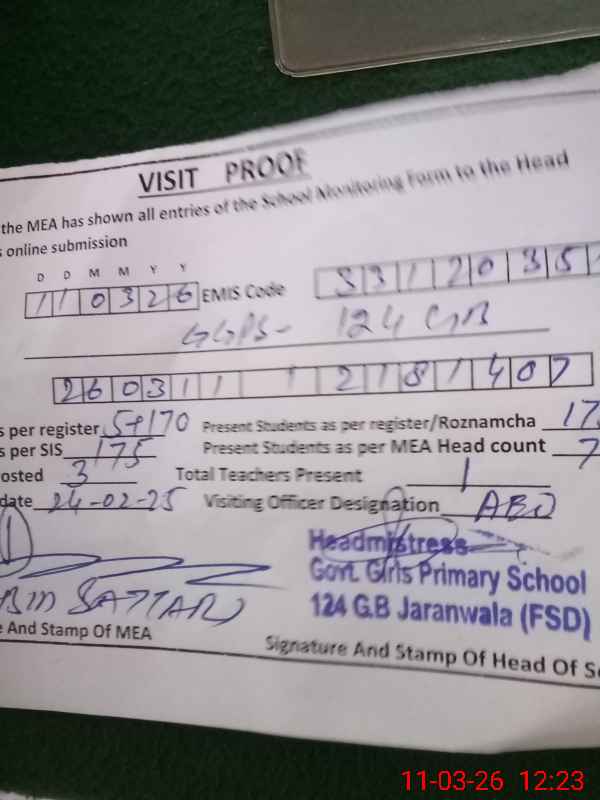 VISIT PROOF
the MEA has shown all entries of the School Monitoring Form to the Head
online submission
D D M M Y Y
110326 EMIS Code 3312035
GGPS- 124 GB
260311 2181407
s per register 5+170 Present Students as per register/Roznamcha 17
s per SIS 175 Present Students as per MEA Head count 7
osted 3 Total Teachers Present 1
date 24-02-25 Visiting Officer Designation
Headmistress
Govt. Girls Primary School
SATTAR 124 G.B Jaranwala (FSD)
e And Stamp Of MEA Signature And Stamp Of Head Of S
11-03-26 12:23